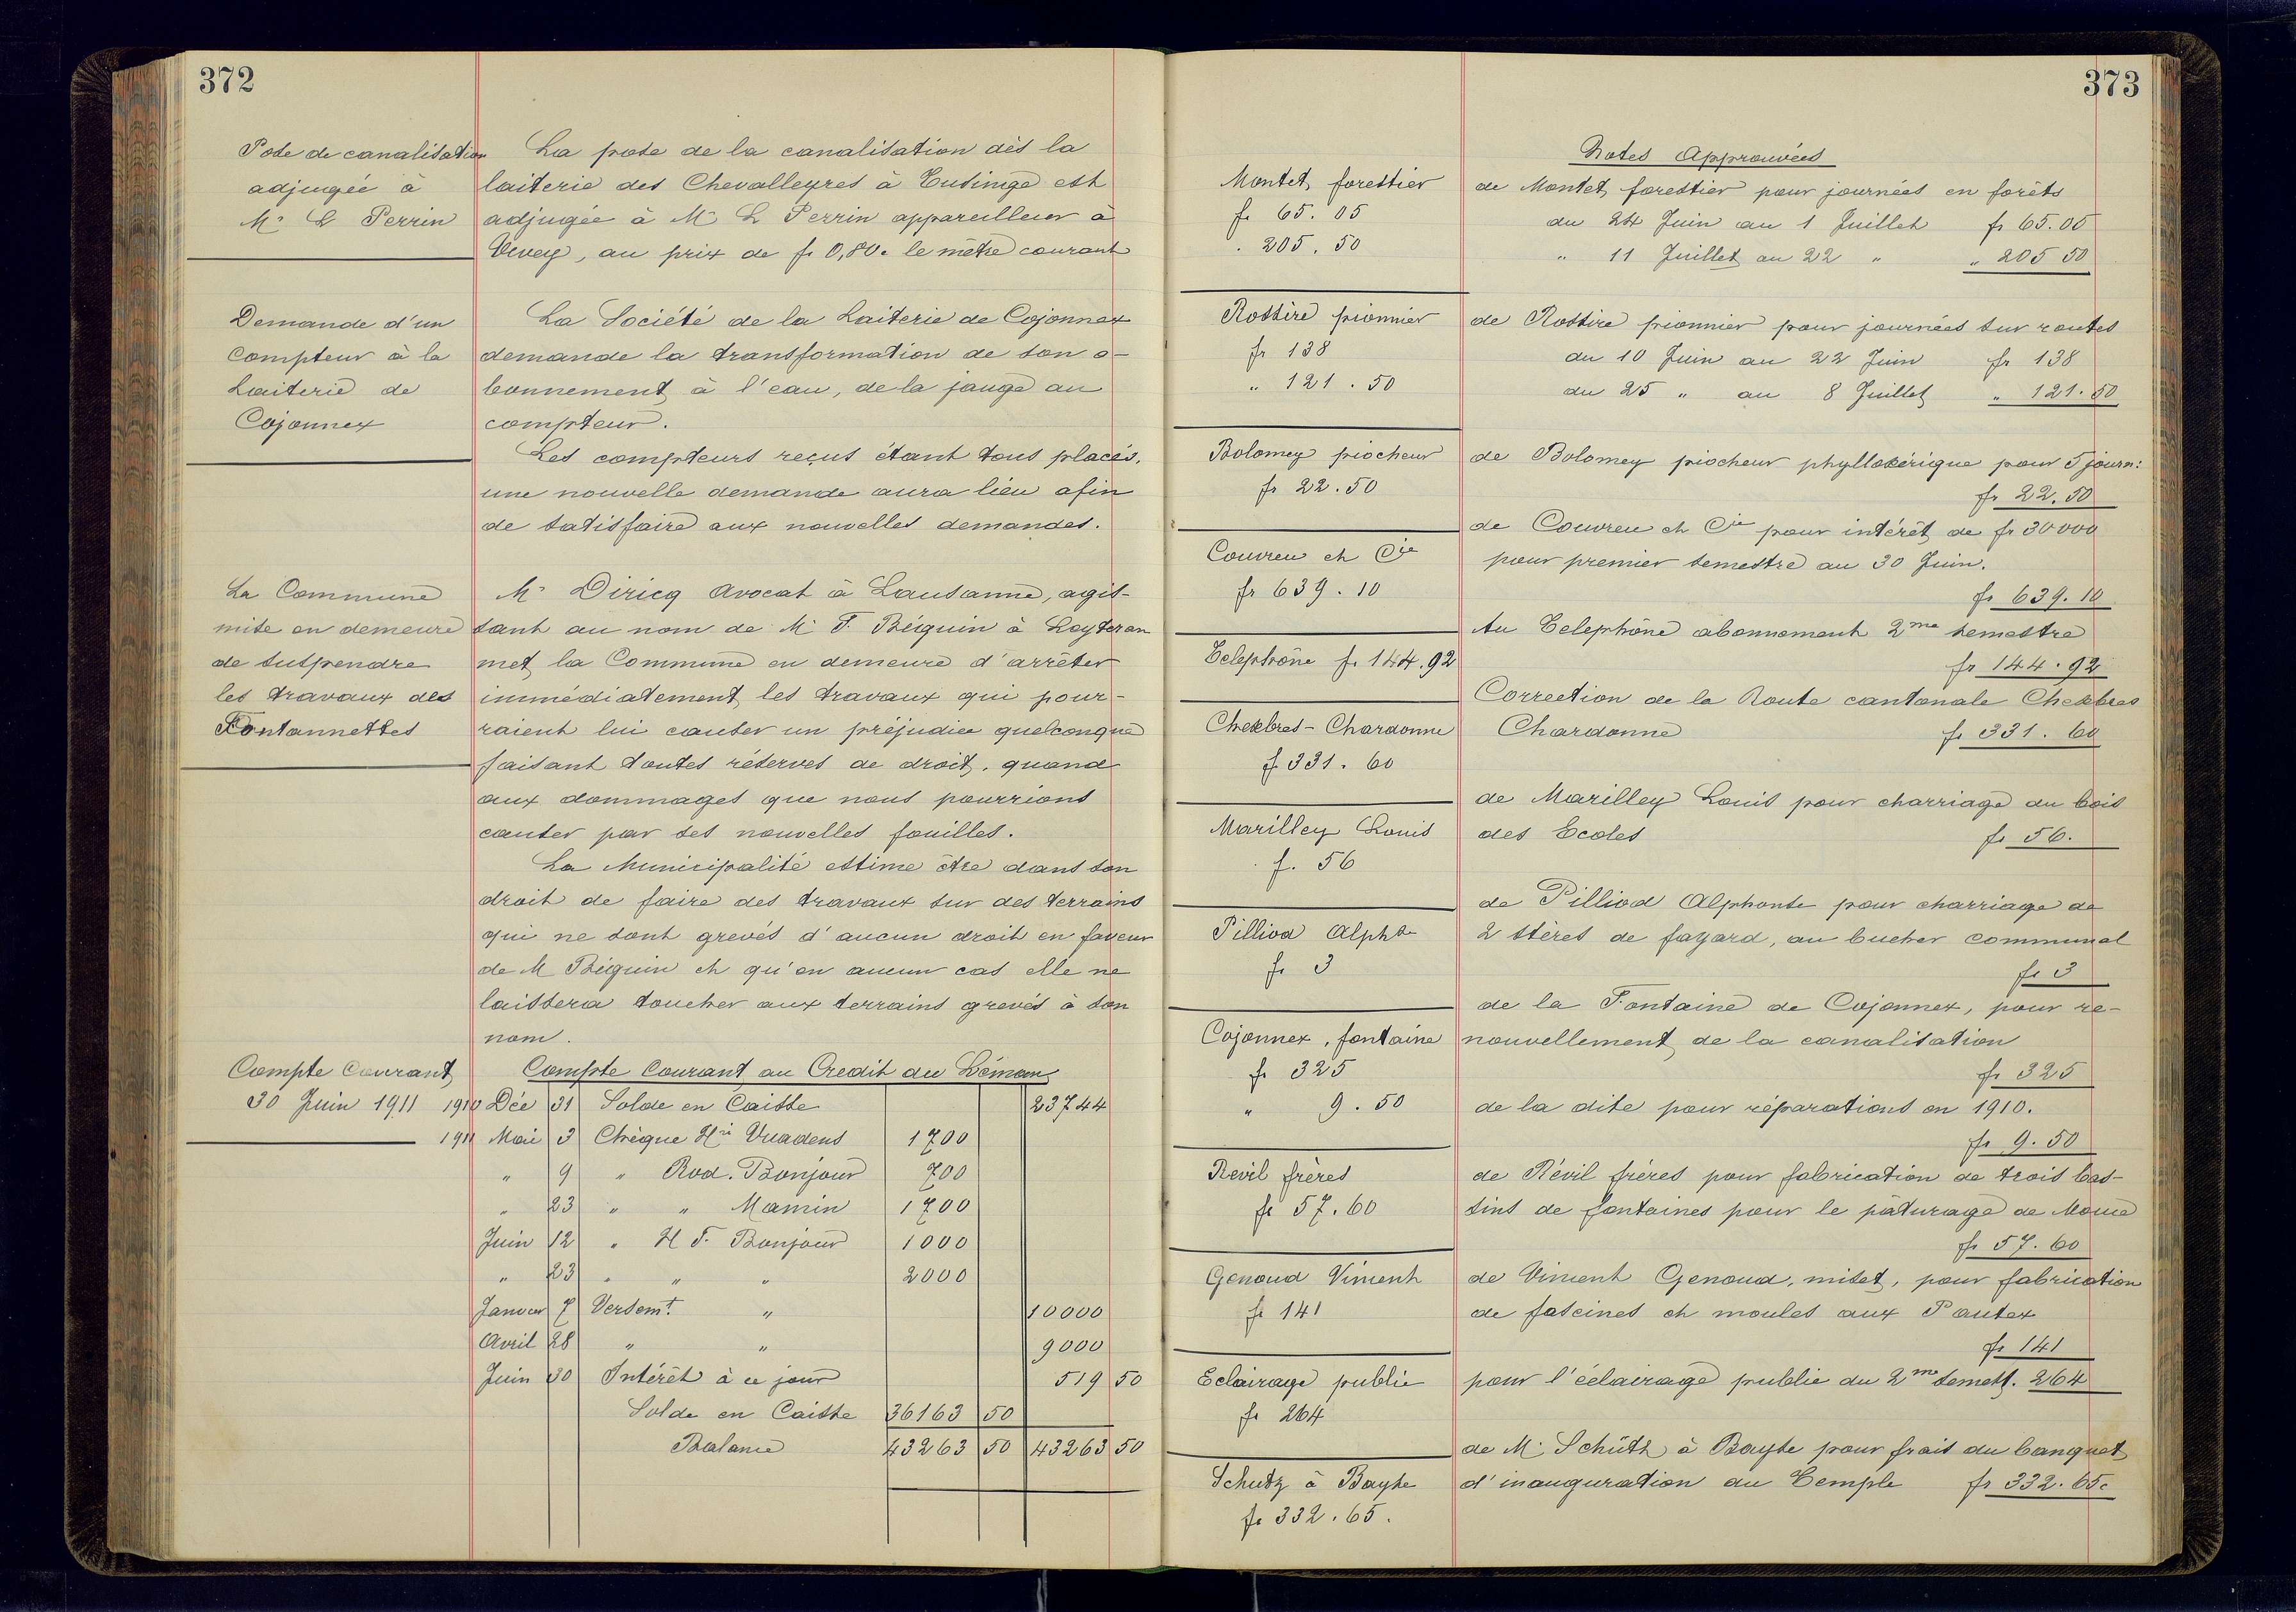 372
Pose de canalisation
adjugée à
Mr L Perrin
La pose de la canalisation dès la
laiterie des Chevalleyres à Tusinge est
adjugée à Mr L Perrin appareilleur à
Vevey, au prix de fr 0,80. le mètre courant
Demande d'un
compteur à la
Laiterie de
Cojonnex
La Société de la Laiterie de Cojonnex
demande la transformation de son a-
bonnement à l'eau, de la jauge au
compteur.
Les compteurs reçus étant tous placés,
une nouvelle demande aura lieu afin
de satisfaire aux nouvelles demandes.
La Commune
mise en demeure
de suspendre
les travaux des
Fontannettes
Mr Diricq Avocat à Lausanne, agis-
sant au nom de Mr F. Béguin à Leyteran
met la Commune en demeure d'arrêter
immédiatement les travaux qui pour-
raient lui causer un préjudice quelconque
faisant toutes réserves de droit, quand
aux dommages que nous pourrions
causer par ses nouvelles fouilles.
La Municipalité estime être dans son
droit de faire des travaux sur des terrains
qui ne sont grevés d'aucun droit en faveur
de M Béguin et qu'en aucun cas elle ne
laissera toucher aux terrains grevés à son
nom.
Compte Courant
30 Juin 1911
Compte Courant au Credit du Léman
1910 Déc 31 Solde en Caisse 23744
1911 Mai 3 Chèque Hri Vuadens 1700
" 9 " Rod. Bonjour 700
" 23 " " Mamin 1700
Juin 12 " H F. Bonjour 1000
" 23 " " " 2000
Janvier 7 Versemt. " 10000
Avril 28 " " 9000
Juin 30 Intérêt à ce jour 519 50
Solde en Caisse 36163 50
Balance 43263 50 43263 50
373
Notes Approuvées
Montet, forestier
fr 65.05
" 205.50
de Montet, forestier pour journées en forêts
du 24 Juin au 1 Juillet fr 65.05
" 11 Juillet au 22 " " 205 50
Rossire pionnier
fr 138
" 121.50
de Rossire pionnier pour journées sur routes
du 10 Juin au 22 Juin fr 138
du 25 " au 8 Juillet " 121.50
Bolomey piocheur
fr 22.50
de Bolomey piocheur phylloxérique pour 5 journ:
fr 22.50
Couvreu et Cie
fr 639.10
de Couvreu et Cie pour intérêt de fr 30000
pour premier semestre au 30 Juin.
fr 639.10
Telephône fr 144.92
Au Telephône abonnement 2me semestre
fr 144.92
Chexbres-Chardonne
f. 331.60
Correction de la Route cantonale Chexbres
Chardonne fr 331.60
Marilley Louis
f. 56
de Marilley Louis pour charriage du bois
des Ecoles fr 56.
Pilliod Alphse
fr 3
de Pilliod Alphonse pour charriage de
2 stères de fayard, au bucher communal
fr 3
Cojonnex, fontaine
fr 325
" 9.50
de la Fontaine de Cojonnex, pour re-
nouvellement de la canalisation
fr 325
de la dite pour réparations en 1910.
fr 9.50
Revil frères
fr 57.60
de Révil frères pour fabrication de trois bas-
sins de fontaines pour le pâturage de Mouse
fr 57.60
Genoud Vincent
fr 141
de Vincent Genoud, miset, pour fabrication
de fascines et moules aux Pautex
fr 141
Eclairage public
fr 264
pour l'éclairage public du 2me semest. 264
Schutz à Bayse
fr 332.65.
de Mr Schütz à Bayse pour frais du banquet
d'inauguration du Temple fr 332.65.